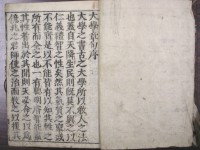 大學章句序
大學之書古之大學所以教人之法
也蓋自天降生民則既莫不與之以
仁義禮智之性矣然其氣質之稟或
不能齊是以不能皆有以知其性之
所有而全之也一有聰明睿智能盡
其性者出於其間則天必命之以爲
億兆之君師使之治而教之以復其